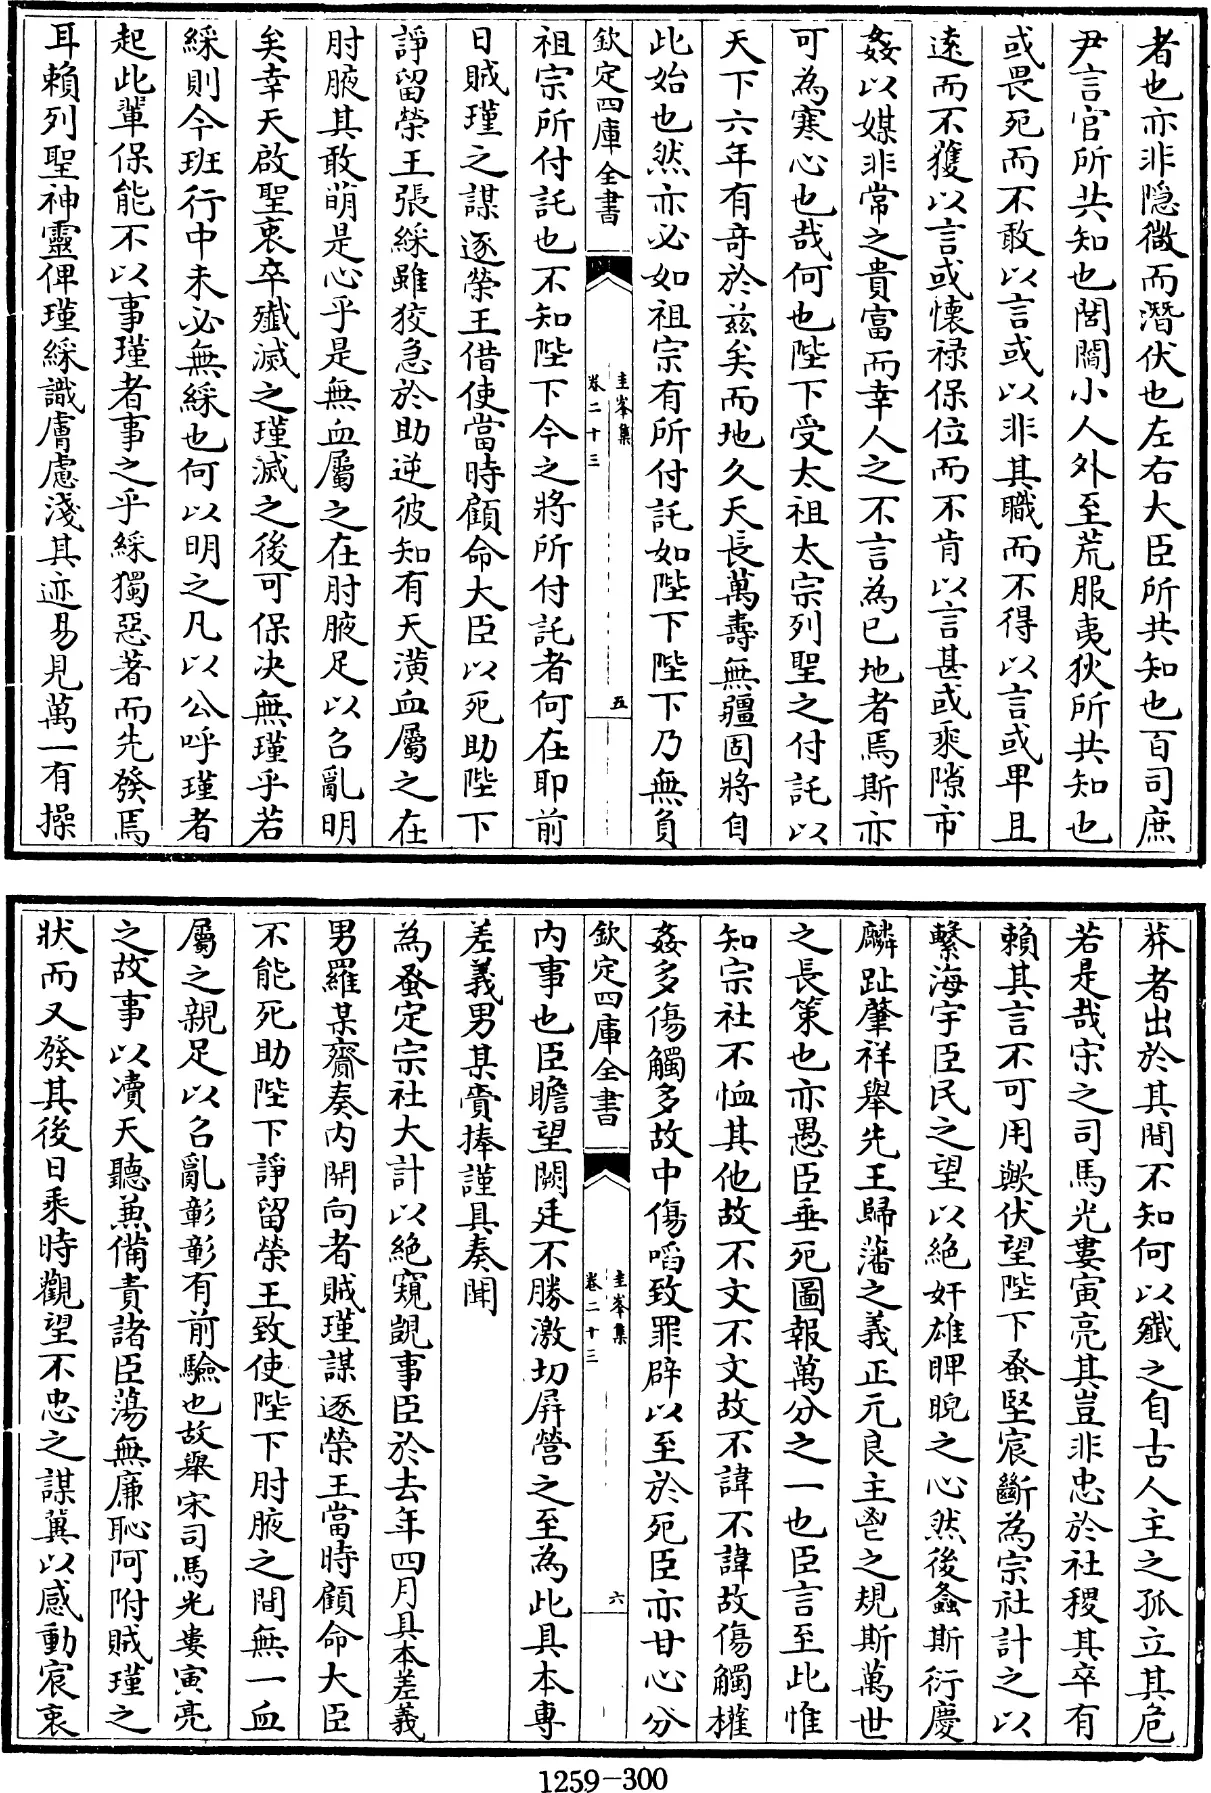 者也亦非隱微而潛伏也左右大臣所共知也百司庶
尹言官所共知也閭閻小人外至荒服夷狄所共知也
或畏死而不敢以言或以非其職而不得以言或卑且
逺而不獲以言或懷禄保位而不肯以言甚或乘隙市
姦以媒非常之貴富而幸人之不言為已地者焉斯亦
可為寒心也哉何也陛下受太祖太宗列聖之付託以
天下六年有竒於兹矣而地久天長萬壽無疆固將自
此始也然亦必如祖宗有所付託如陛下陛下乃無負
欽定四庫全書
圭峯集
卷二十三
五
祖宗所付託也不知陛下今之將所付託者何在耶前
日賊瑾之謀逐榮王借使當時顧命大臣以死助陛下
諍留榮王張綵雖狡急於助逆彼知有天潢血屬之在
肘腋其敢萌是心乎是無血屬之在肘腋足以召亂明
矣幸天啟聖衷卒殱滅之瑾滅之後可保決無瑾乎若
綵則今班行中未必無綵也何以明之凡以公呼瑾者
起此輩保能不以事瑾者事之乎綵獨惡著而先發焉
耳賴列聖神靈俾瑾綵識膚慮淺其迹易見萬一有操
莽者出於其間不知何以殱之自古人主之孤立其危
若是哉宋之司馬光婁寅亮其豈非忠於社稷其卒有
賴其言不可用歟伏望陛下蚤堅宸斷為宗社計之以
繫海宇臣民之望以絶奸雄睥睨之心然後螽斯衍慶
麟趾肇祥舉先王歸藩之義正元良主鬯之規斯萬世
之長策也亦愚臣垂死圖報萬分之一也臣言至此惟
知宗社不恤其他故不文不文故不諱不諱故傷觸權
姦多傷觸多故中傷㗖致罪辟以至於死臣亦甘心分
欽定四庫全書
圭峯集
卷二十三
六
内事也臣瞻望闕廷不勝激切屏營之至為此具本專
差義男某賫捧謹具奏聞
為蚤定宗社大計以絶窺覬事臣於去年四月具本差義
男羅某齎奏内開向者賊瑾謀逐榮王當時顧命大臣
不能死助陛下諍留榮王致使陛下肘腋之間無一血
屬之親足以召亂彰彰有前驗也故舉宋司馬光婁寅亮
之故事以凟天聽兼備責諸臣蕩無廉恥阿附賊瑾之
狀而又發其後日乘時觀望不忠之謀冀以感動宸衷
1259-300